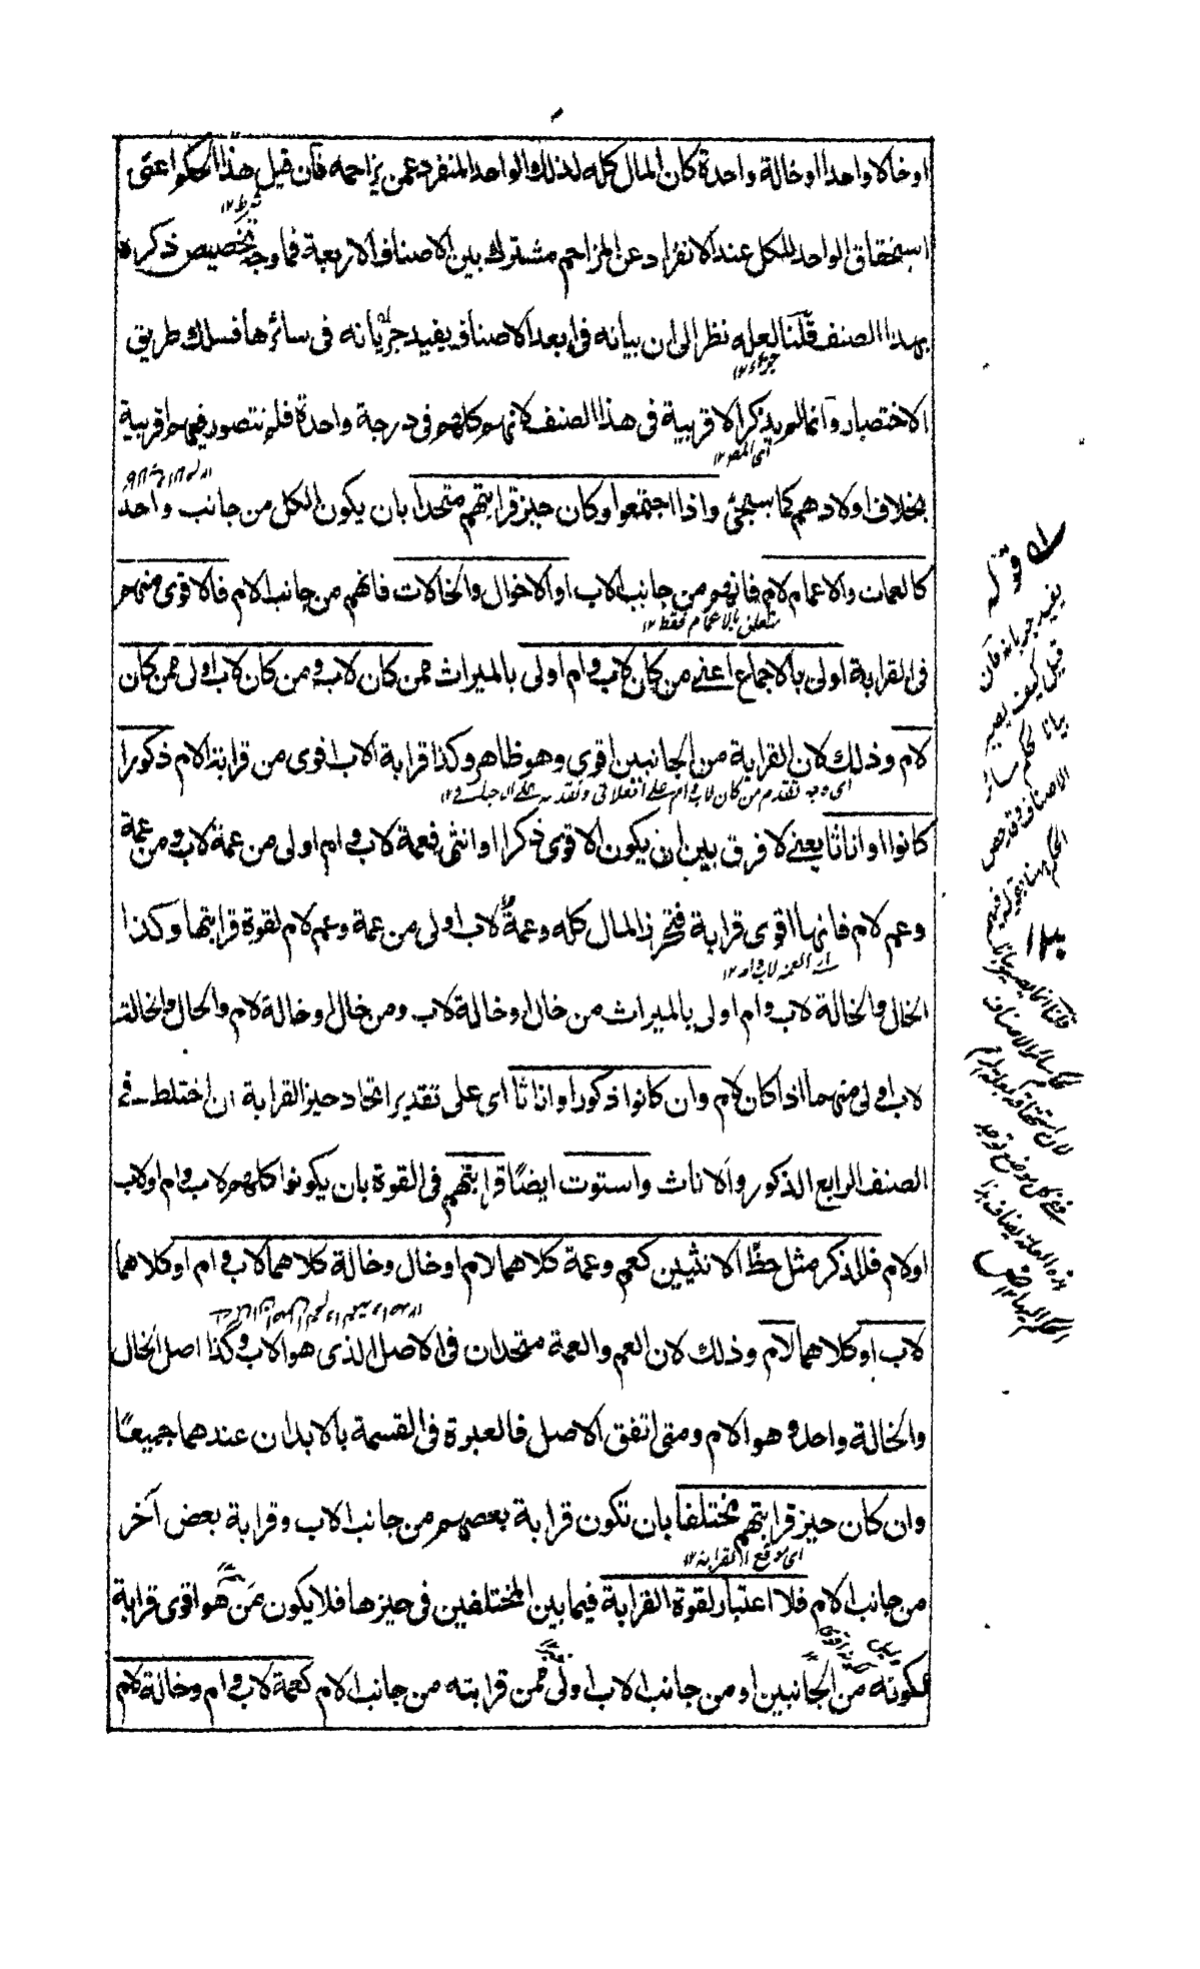 اوخالا واحدا اوخالة واحدة كان المال كله لذلك الواحد المنفرد عمن يزاحمه فان قيل هذا الحكم اعنى
استحقاق الواحد للكل عند الانفراد عن المزاحم مشترك بين الاصناف الاربعة فما وجه تخصيص ذكره
بهذا الصنف قلنا لعله نظر الى ان بيانه فى ابعد الاصناف يفيد جريانه فى سائرها فسلك طريق
الاختصار وانما لم يذكر الاقربية فى هذا الصنف لانهم كلهم فى درجة واحدة فلم تتصور فيهم اقربية
اى المص ١٢
بخلاف اولادهم كما سيجئ واذا اجتمعوا وكان حيز قرابتهم متحدا بان يكون الكل من جانب واحد
كالعمات والاعمام لام فانهم من جانب الاب او الاخوال والخالات فانهم من جانب الام فالاقوى منهم
متعلق بالاعمام فقط ١٢
فى القرابة اولى بالاجماع اعنى من كان لاب وام اولى بالميراث ممن كان لاب ومن كان لاب اولى ممن كان
لام وذلك لان القرابة من الجانبين اقوى وهو ظاهر وكذا قرابة الاب اقوى من قرابة الام ذكورا
كانوا او اناثا يعنى لا فرق بين ان يكون الاقوى ذكرا او انثى فعمة لاب وام اولى من عمة لاب ومن عمة
وعم لام فانها اقوى قرابة فتحرز المال كله وعمة لاب اولى من عمة وعم لام لقوة قرابتها وكذا
الخال والخالة لاب وام اولى بالميراث من خال او خالة لاب ومن خال او خالة لام والخال والخالة
لاب اولى منهما اذا كان لام وان كانوا ذكورا واناثا اى على تقدير اتحاد حيز القرابة ان اختلط فى
الصنف الرابع الذكور والاناث واستوت ايضًا قرابتهم فى القوة بان يكونوا كلهم لاب وام اولاب
اولام فللذكر مثل حظ الانثيين كعم وعمة كلاهما لام اوخال وخالة كلاهما لاب وام اوكلاهما
لاب اوكلاهما لام وذلك لان العم والعمة متحدان فى الاصل الذى هو الاب وكذا اصل الخال
والخالة واحد وهو الام ومتى اتفق الاصل فالعبرة فى القسمة بالابدان عندهما جميعًا
وان كان حيز قرابتهم مختلفا بان تكون قرابة بعضهم من جانب الاب وقرابة بعض آخر
اى موقع القرابة ١٢
من جانب الام فلا اعتبار لقوة القرابة فيما بين المختلفين فى حيزها فلا يكون من هو اقوى قرابة
لكونه من الجانبين او من جانب الاب اولى ممن قرابته من جانب الام كعمة لاب وام وخالة لام
قوله
يفيد جريانه فان
قيل كيف يصير
بيانا لحكم سائر
الاصناف وقد خص